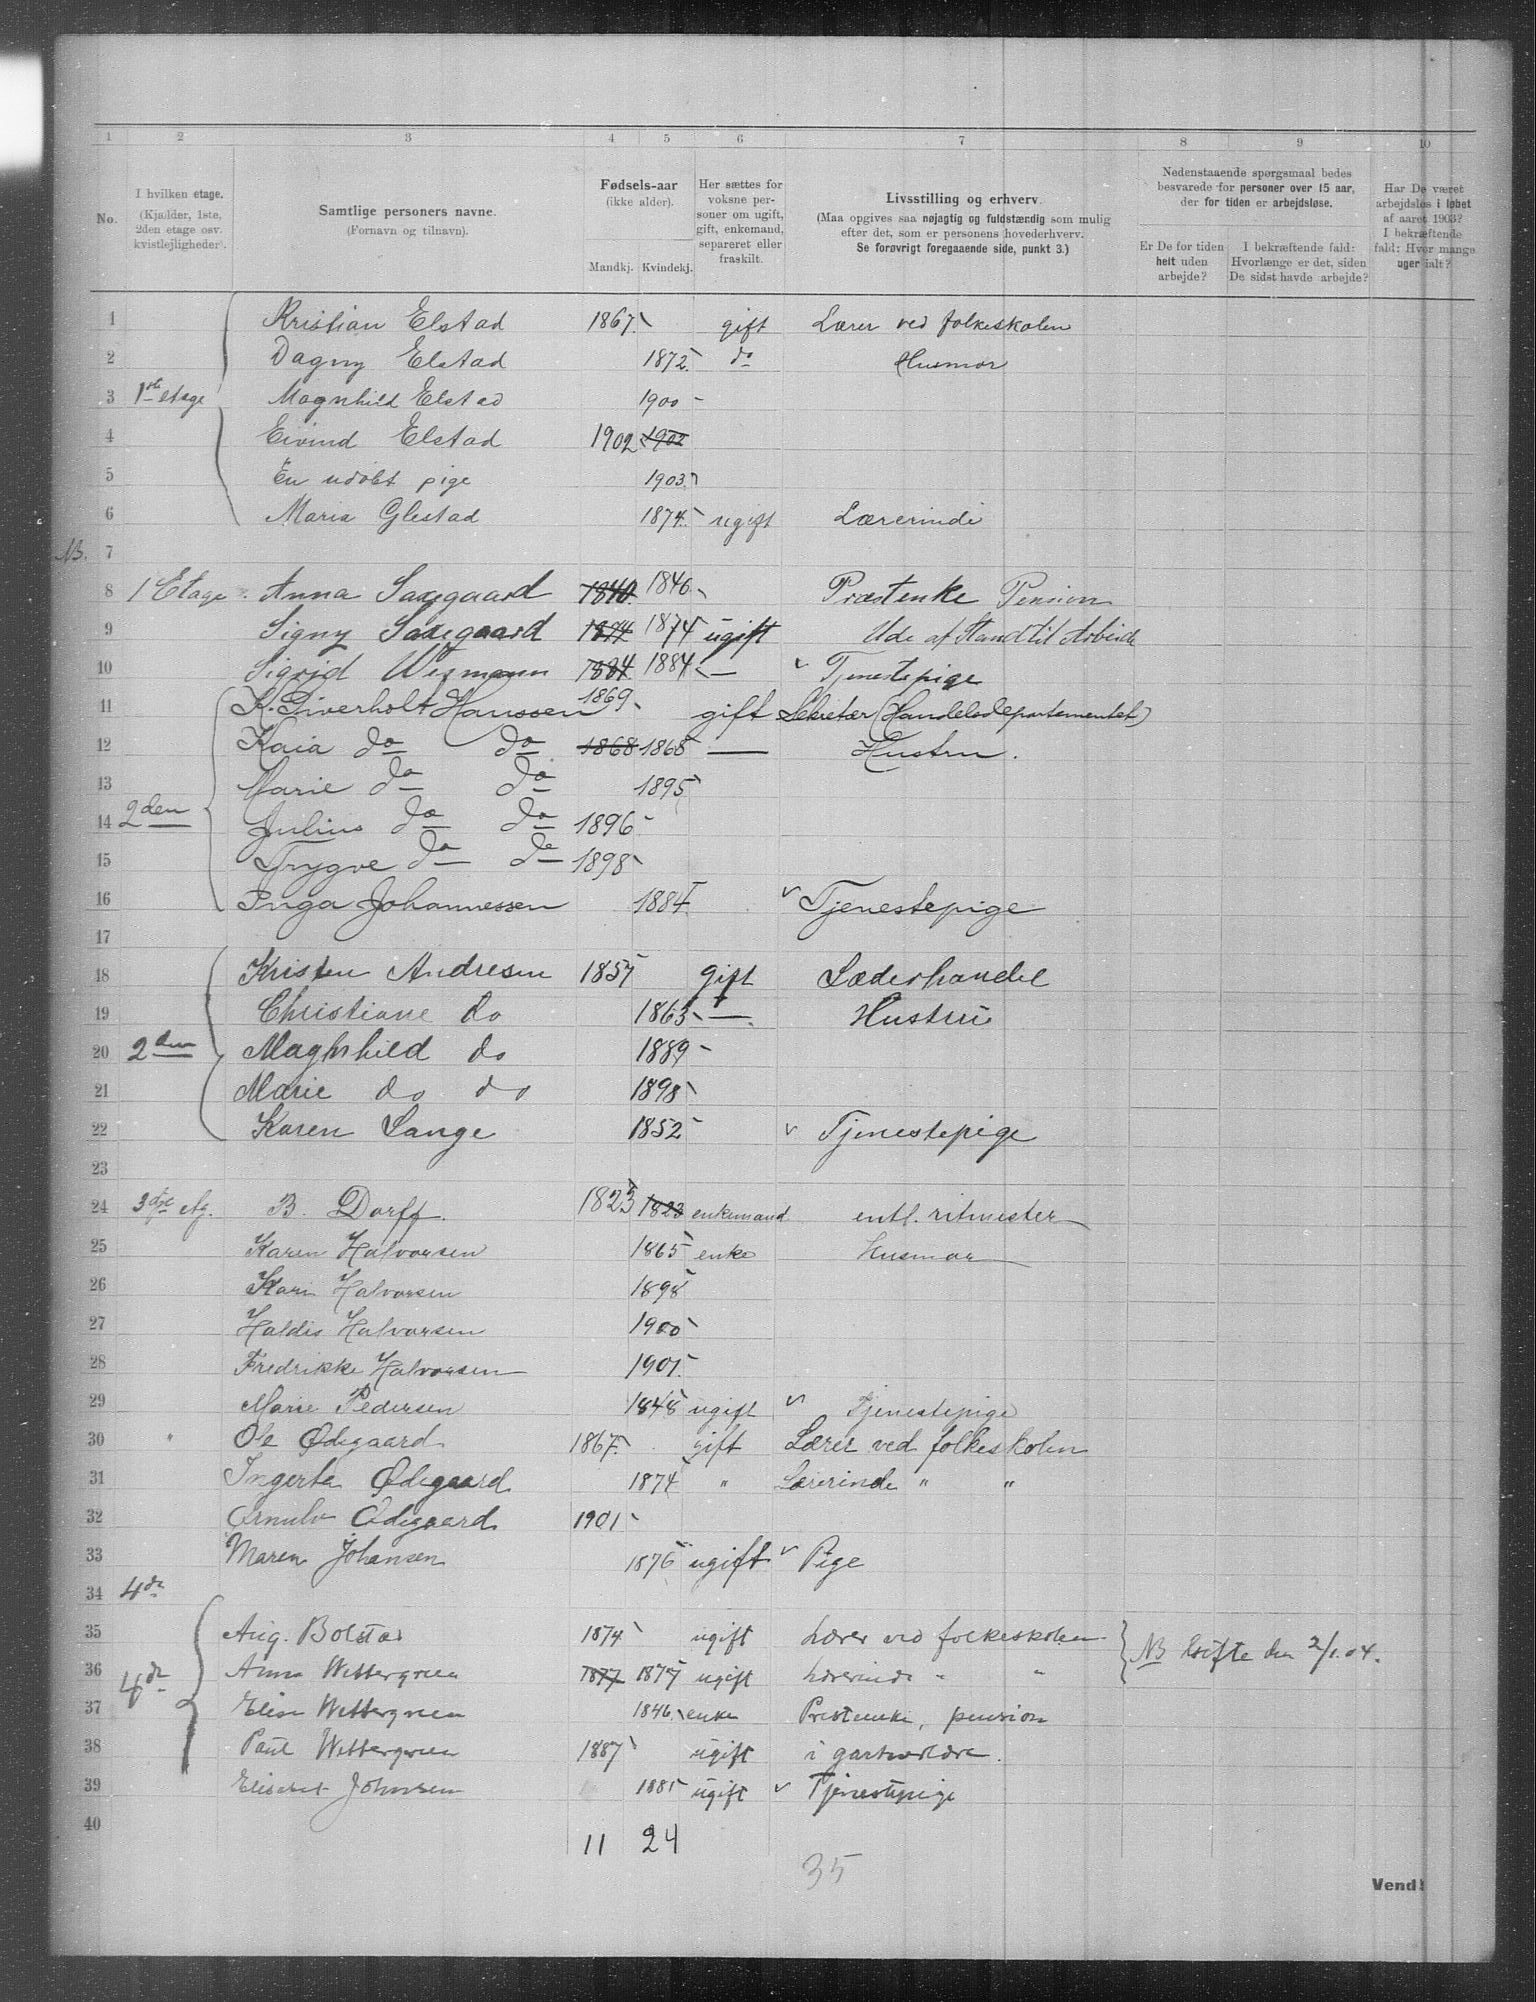 1 2 3 4 5 6 7 8 9 10
No.
I hvilken etage.
(Kjælder, 1ste, 2den etage osv. kvistlejligheder).
Samtlige personers navne.
(Fornavn og tilnavn).
Fødsels-aar
(ikke alder).
Mandkj. Kvindekj.
Her sættes for voksne personer om ugift, gift, enkemand, separeret eller fraskilt.
Livsstilling og erhverv.
(Maa opgives saa nøjagtig og fuldstændig som mulig
efter det, som er personens hovederhverv.
Se forøvrigt foregaaende side, punkt 3.)
Nedenstaaende spørgsmaal bedes
besvarede for personer over 15 aar,
der for tiden er arbejdsløse.
Er De for tiden helt uden arbejde?
I bekræftende fald: Hvorlænge er det, siden De sidst havde arbejde?
Har De været arbejdsløs i løbet af aaret 1903? I bekræftende fald: Hvor mange uger ialt?
1 Kristian Elstad 1867 gift Lærer ved folkeskolen
2 Dagny Elstad 1872 do Husmor
3 1ste etage Magnhild Elstad 1900
4 Eivind Elstad 1902 1902
5 En udøbt pige 1903
6 Maria Glestad 1874 ugift Lærerinde
NB. 7
8 1 Etage Anna Saxegaard 1840 1846 Præstenke Pension
9 Signy Saxegaard 1874 1874 ugift Ude af Stand til Arbeide
10 Sigrid Wegmann 1884 1884 — Tjenestepige
11 K. Siverholt Hanssen 1869 gift Sekretær (Handelsdepartementet)
12 Kaia do do 1868 1868 — Hustru.
13 Marie do do 1895
14 2den Julius do do 1896
15 Trygve do do 1898
16 Inga Johannessen 1884 Tjenestepige
17
18 Kristen Andresen 1857 gift Læderhandel
19 Christiane do 1863 — Hustru
20 2den Maghhild do 1889
21 Marie do do 1898
22 Karen Lange 1852 Tjenestepige
23
24 3dje etg. B. Dorff. 1823 1823 enkemand entl. ritmester
25 Karen Halvorsen 1865 enke Husmor
26 Kari Halvorsen 1898
27 Haldis Halvorsen 1900
28 Fredrikke Halvorsen 1901
29 Marie Pedersen 1848 ugift Tjenestepige
30 " Ole Ødegaard 1867 gift Lærer ved folkeskolen
31 Ingerta Ødegaard 1874 " Lærerinde " "
32 Ørnulv Ødegaard 1901
33 Maren Johansen 1876 ugift Pige
34 4de
35 Aug. Bolstad 1874 ugift Lærer ved folkeskolen
36 4de Anna Wettergreen 1877 1877 ugift Lærerinde " " NB Gifte den 2/1.04.
37 Elise Wettergreen 1846 enke Prestenke, pension
38 Paul Wettergreen 1887 ugift i gartnerlære.
39 Elisabet Johnsen 1885 ugift Tjenestepige
40
11 24
35
Vend!